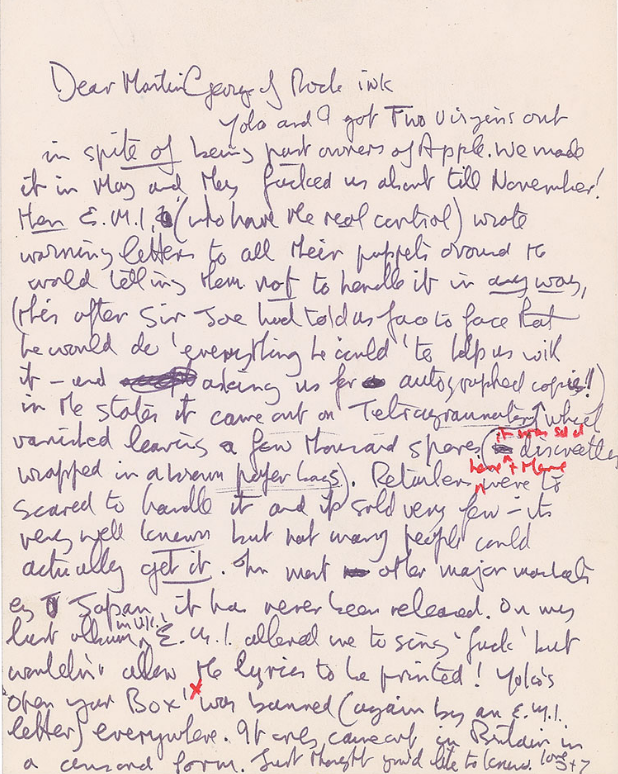 Dear Martin George of Rock ink
Yoko and I got Two Virgins out
in spite of being part owners of Apple. We made
it in May and they fucked us about till November!
Then E.M.I. (who have the real control) wrote
warning letters to all their puppets around the
world telling them not to handle it in any way,
(this after Sir Joe had told us face to face that
he would do 'everything he could' to help us with
it - and asking us for autographed copies!!)
in the states it came out on Tetragrammaton which
it was sold
vanished leaving a few thousand spare (discreetly
here + there
wrapped in a brown paper bags). Retailers were to
scared to handle it and it sold very few - its
very well known but not many people could
actually get it. In most other major markets
eg Japan, it has never been released. On my
in U.K.
last album E.M.I. allowed me to sing 'fuck' but
wouldn't allow the lyrics to be printed! Yoko's
'Open your Box' x was banned (again by an E.M.I.
letter) everywhere. It only came out in Britain in
a censored form. Just thought you'd like to know. love